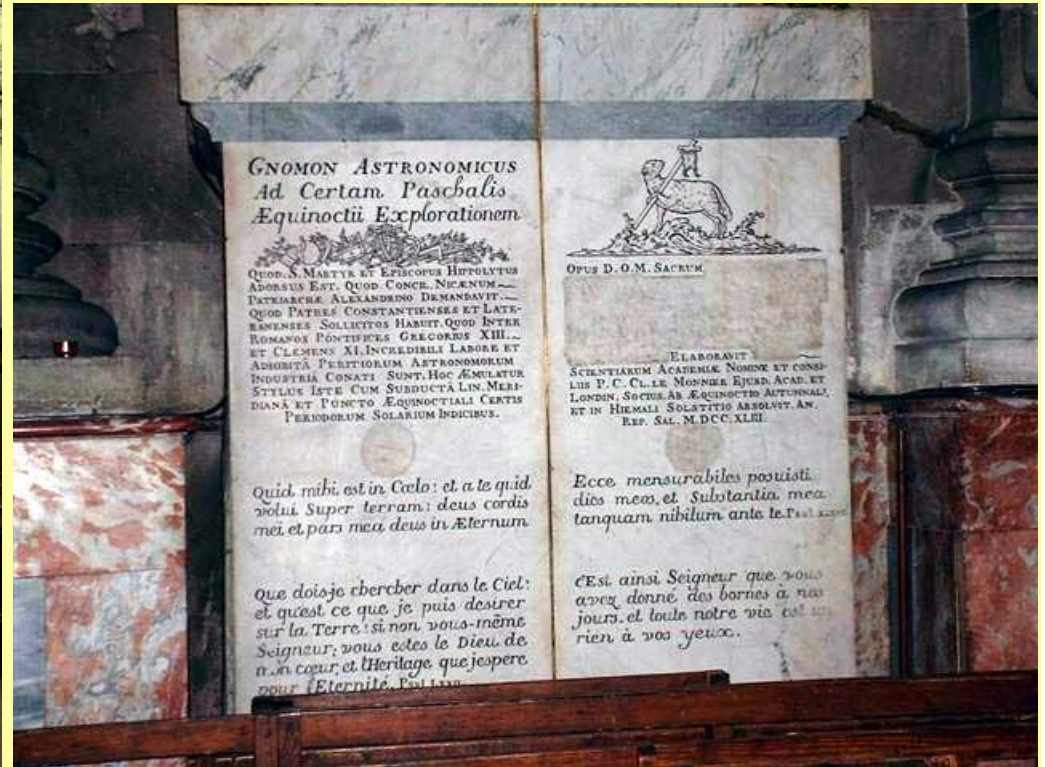 GNOMON ASTRONOMICUS
Ad Certam Paschalis
Æquinoctii Explorationem
QUOD. S. MARTYR ET EPISCOPUS HIPPOLYTUS
ADORSUS EST. QUOD CONCIL. NICÆNUM
PATRIARCHÆ ALEXANDRINO DEMANDAVIT.
QUOD PATRES CONSTANTIENSES ET LATE-
RANENSES SOLLICITOS HABUIT. QUOD INTER
ROMANOS PONTIFICES GREGORIUS XIII.
ET CLEMENS XI. INCREDIBILI LABORE ET
ADHIBITÂ PERITIORUM ASTRONOMORUM
INDUSTRIA CONATI SUNT. HOC ÆMULATUR
STYLUS ISTE CUM SUBDUCTÂ LIN. MERI-
DIANÂ ET PUNCTO ÆQUINOCTIALI CERTIS
PERIODORUM SOLARIUM INDICIBUS.
Quid mihi est in Cœlo: et a te quid
volui Super terram: deus cordis
mei et pars mea deus in Æternum
Que dois je chercher dans le Ciel:
et qu'est ce que je puis desirer
sur la Terre: si non vous-même
Seigneur; vous estes le Dieu de
mon cœur, et l'Heritage que jespere
pour l'Eternité.
OPUS D. O. M. SACRUM
ELABORAVIT
SCIENTIARUM ACADEMIÆ NOMINE ET CONSI-
LIIS P. C. CL. LE MONNIER EJUSD. ACAD. ET
LONDIN. SOCIUS. AB ÆQUINOCTIO AUTUMNALI,
ET IN HIEMALI SOLSTITIO ABSOLVIT. AN.
REP. SAL. M.DCC.XLIII.
Ecce mensurabiles posuisti
dies meos, et Substantia mea
tanquam nihilum ante te.
c'Est ainsi Seigneur que vous
avez donné des bornes à nos
jours. et toute notre vie est un
rien à vos yeux.